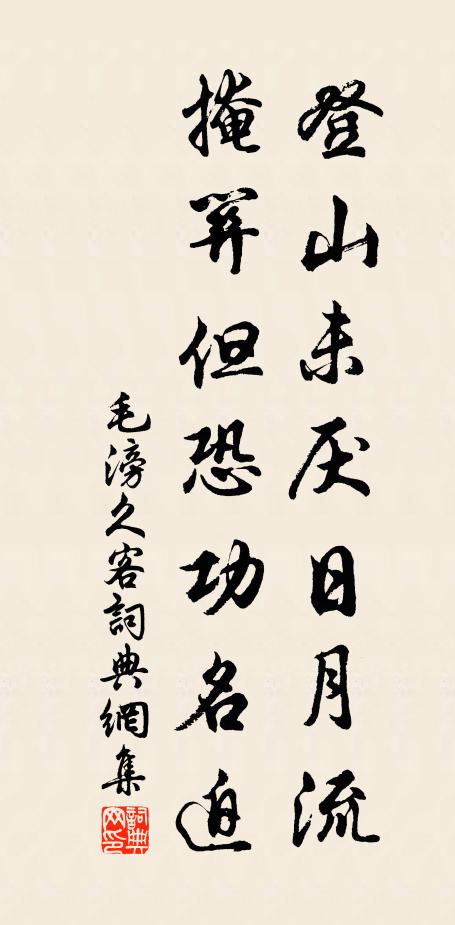 登山未厌日月流
掩关但恐功名迫
毛滂久客詞典網集
詞典
网印